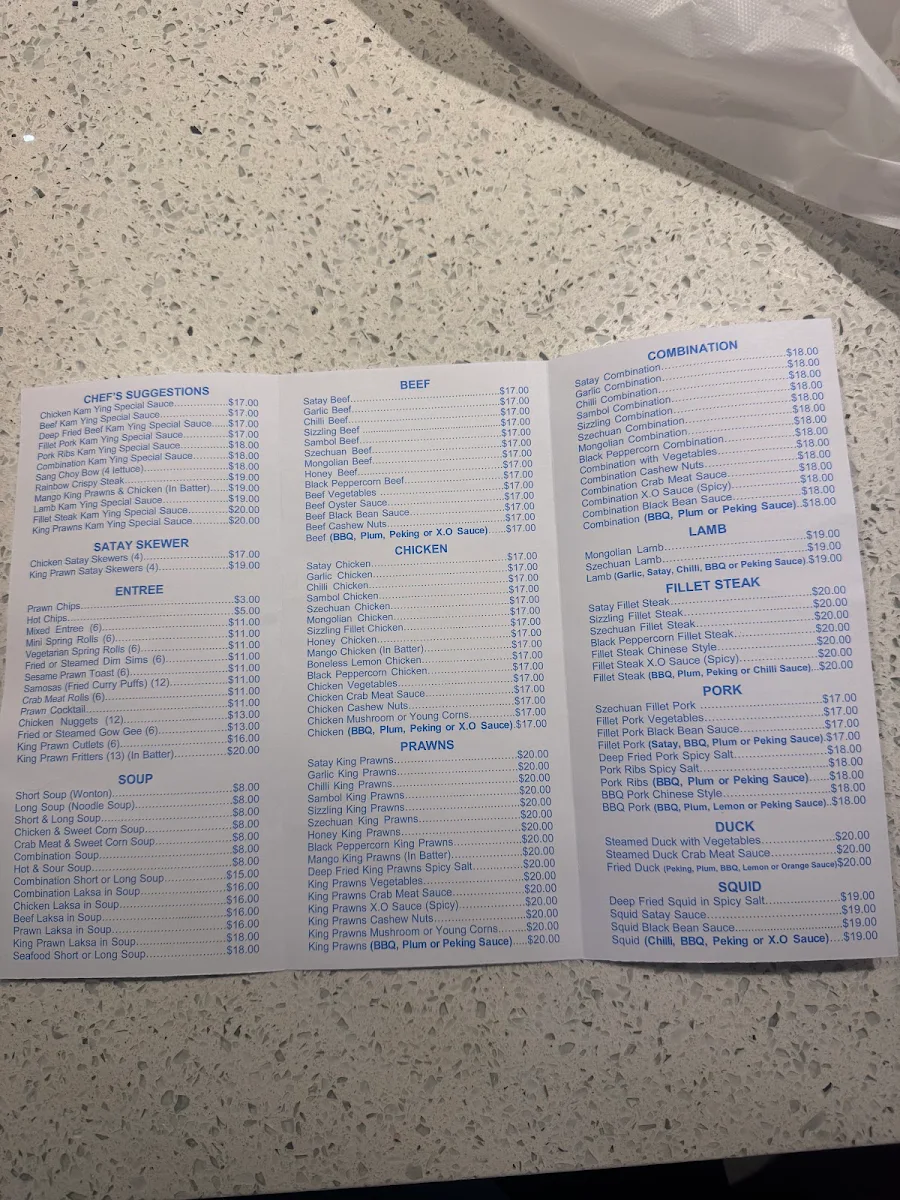 CHEF'S SUGGESTIONS
Chicken Kam Ying Special Sauce..............$17.00
Beef Kam Ying Special Sauce..................$17.00
Deep Fried Beef Kam Ying Special Sauce.....$17.00
Fillet Pork Kam Ying Special Sauce...........$17.00
Pork Ribs Kam Ying Special Sauce............$18.00
Combination Kam Ying Special Sauce.........$18.00
Sang Choy Bow (4 lettuce).....................$18.00
Rainbow Crispy Steak...........................$19.00
Mango King Prawns & Chicken (In Batter)....$19.00
Lamb Kam Ying Special Sauce.................$19.00
Fillet Steak Kam Ying Special Sauce..........$20.00
King Prawns Kam Ying Special Sauce.........$20.00
SATAY SKEWER
Chicken Satay Skewers (4).....................$17.00
King Prawn Satay Skewers (4).................$19.00
ENTREE
Prawn Chips......................................$3.00
Hot Chips.........................................$5.00
Mixed Entree (6)................................$11.00
Mini Spring Rolls (6)............................$11.00
Vegetarian Spring Rolls (6)....................$11.00
Fried or Steamed Dim Sims (6)................$11.00
Sesame Prawn Toast (6)........................$11.00
Samosas (Fried Curry Puffs) (12)..............$11.00
Crab Meat Rolls (6).............................$11.00
Prawn Cocktail...................................$11.00
Chicken Nuggets (12)...........................$13.00
Fried or Steamed Gow Gee (6)................$13.00
King Prawn Cutlets (6).........................$16.00
King Prawn Fritters (13) (In Batter)...........$20.00
SOUP
Short Soup (Wonton)............................$8.00
Long Soup (Noodle Soup)......................$8.00
Short & Long Soup...............................$8.00
Chicken & Sweet Corn Soup....................$8.00
Crab Meat & Sweet Corn Soup.................$8.00
Combination Soup...............................$8.00
Hot & Sour Soup.................................$8.00
Combination Short or Long Soup..............$15.00
Combination Laksa in Soup....................$16.00
Chicken Laksa in Soup.........................$16.00
Beef Laksa in Soup.............................$16.00
Prawn Laksa in Soup...........................$16.00
King Prawn Laksa in Soup.....................$18.00
Seafood Short or Long Soup..................$18.00
BEEF
Satay Beef.......................................$17.00
Garlic Beef.......................................$17.00
Chilli Beef........................................$17.00
Sizzling Beef.....................................$17.00
Sambol Beef.....................................$17.00
Szechuan Beef..................................$17.00
Mongolian Beef..................................$17.00
Honey Beef......................................$17.00
Black Peppercorn Beef.........................$17.00
Beef Vegetables.................................$17.00
Beef Oyster Sauce..............................$17.00
Beef Black Bean Sauce.........................$17.00
Beef Cashew Nuts...............................$17.00
Beef (BBQ, Plum, Peking or X.O Sauce).....$17.00
CHICKEN
Satay Chicken...................................$17.00
Garlic Chicken...................................$17.00
Chilli Chicken....................................$17.00
Sambol Chicken.................................$17.00
Szechuan Chicken..............................$17.00
Mongolian Chicken..............................$17.00
Sizzling Fillet Chicken..........................$17.00
Honey Chicken..................................$17.00
Mango Chicken (In Batter).....................$17.00
Boneless Lemon Chicken......................$17.00
Black Peppercorn Chicken.....................$17.00
Chicken Vegetables.............................$17.00
Chicken Crab Meat Sauce.....................$17.00
Chicken Cashew Nuts..........................$17.00
Chicken Mushroom or Young Corns..........$17.00
Chicken (BBQ, Plum, Peking or X.O Sauce).$17.00
PRAWNS
Satay King Prawns..............................$20.00
Garlic King Prawns..............................$20.00
Chilli King Prawns...............................$20.00
Sambol King Prawns............................$20.00
Sizzling King Prawns............................$20.00
Szechuan King Prawns.........................$20.00
Honey King Prawns.............................$20.00
Black Peppercorn King Prawns...............$20.00
Mango King Prawns (In Batter)...............$20.00
Deep Fried King Prawns Spicy Salt..........$20.00
King Prawns Vegetables.......................$20.00
King Prawns Crab Meat Sauce................$20.00
King Prawns X.O Sauce (Spicy)..............$20.00
King Prawns Cashew Nuts.....................$20.00
King Prawns Mushroom or Young Corns.....$20.00
King Prawns (BBQ, Plum or Peking Sauce)....$20.00
COMBINATION
Satay Combination..............................$18.00
Garlic Combination..............................$18.00
Chilli Combination...............................$18.00
Sambol Combination............................$18.00
Sizzling Combination............................$18.00
Szechuan Combination.........................$18.00
Mongolian Combination.........................$18.00
Black Peppercorn Combination................$18.00
Combination with Vegetables..................$18.00
Combination Cashew Nuts.....................$18.00
Combination Crab Meat Sauce................$18.00
Combination X.O Sauce (Spicy)..............$18.00
Combination Black Bean Sauce...............$18.00
Combination (BBQ, Plum or Peking Sauce)..$18.00
LAMB
Mongolian Lamb.................................$19.00
Szechuan Lamb..................................$19.00
Lamb (Garlic, Satay, Chilli, BBQ or Peking Sauce).$19.00
FILLET STEAK
Satay Fillet Steak................................$20.00
Sizzling Fillet Steak.............................$20.00
Szechuan Fillet Steak...........................$20.00
Black Peppercorn Fillet Steak..................$20.00
Fillet Steak Chinese Style......................$20.00
Fillet Steak X.O Sauce (Spicy)................$20.00
Fillet Steak (BBQ, Plum, Peking or Chilli Sauce)...$20.00
PORK
Szechuan Fillet Pork ............................$17.00
Fillet Pork Vegetables...........................$17.00
Fillet Pork Black Bean Sauce...................$17.00
Fillet Pork (Satay, BBQ, Plum or Peking Sauce).$17.00
Deep Fried Pork Spicy Salt.....................$18.00
Pork Ribs Spicy Salt.............................$18.00
Pork Ribs (BBQ, Plum or Peking Sauce)......$18.00
BBQ Pork Chinese Style........................$18.00
BBQ Pork (BBQ, Plum, Lemon or Peking Sauce)..$18.00
DUCK
Steamed Duck with Vegetables................$20.00
Steamed Duck Crab Meat Sauce..............$20.00
Fried Duck (Peking, Plum, BBQ, Lemon or Orange Sauce)$20.00
SQUID
Deep Fried Squid in Spicy Salt.................$19.00
Squid Satay Sauce..............................$19.00
Squid Black Bean Sauce........................$19.00
Squid (Chilli, BBQ, Peking or X.O Sauce)....$19.00